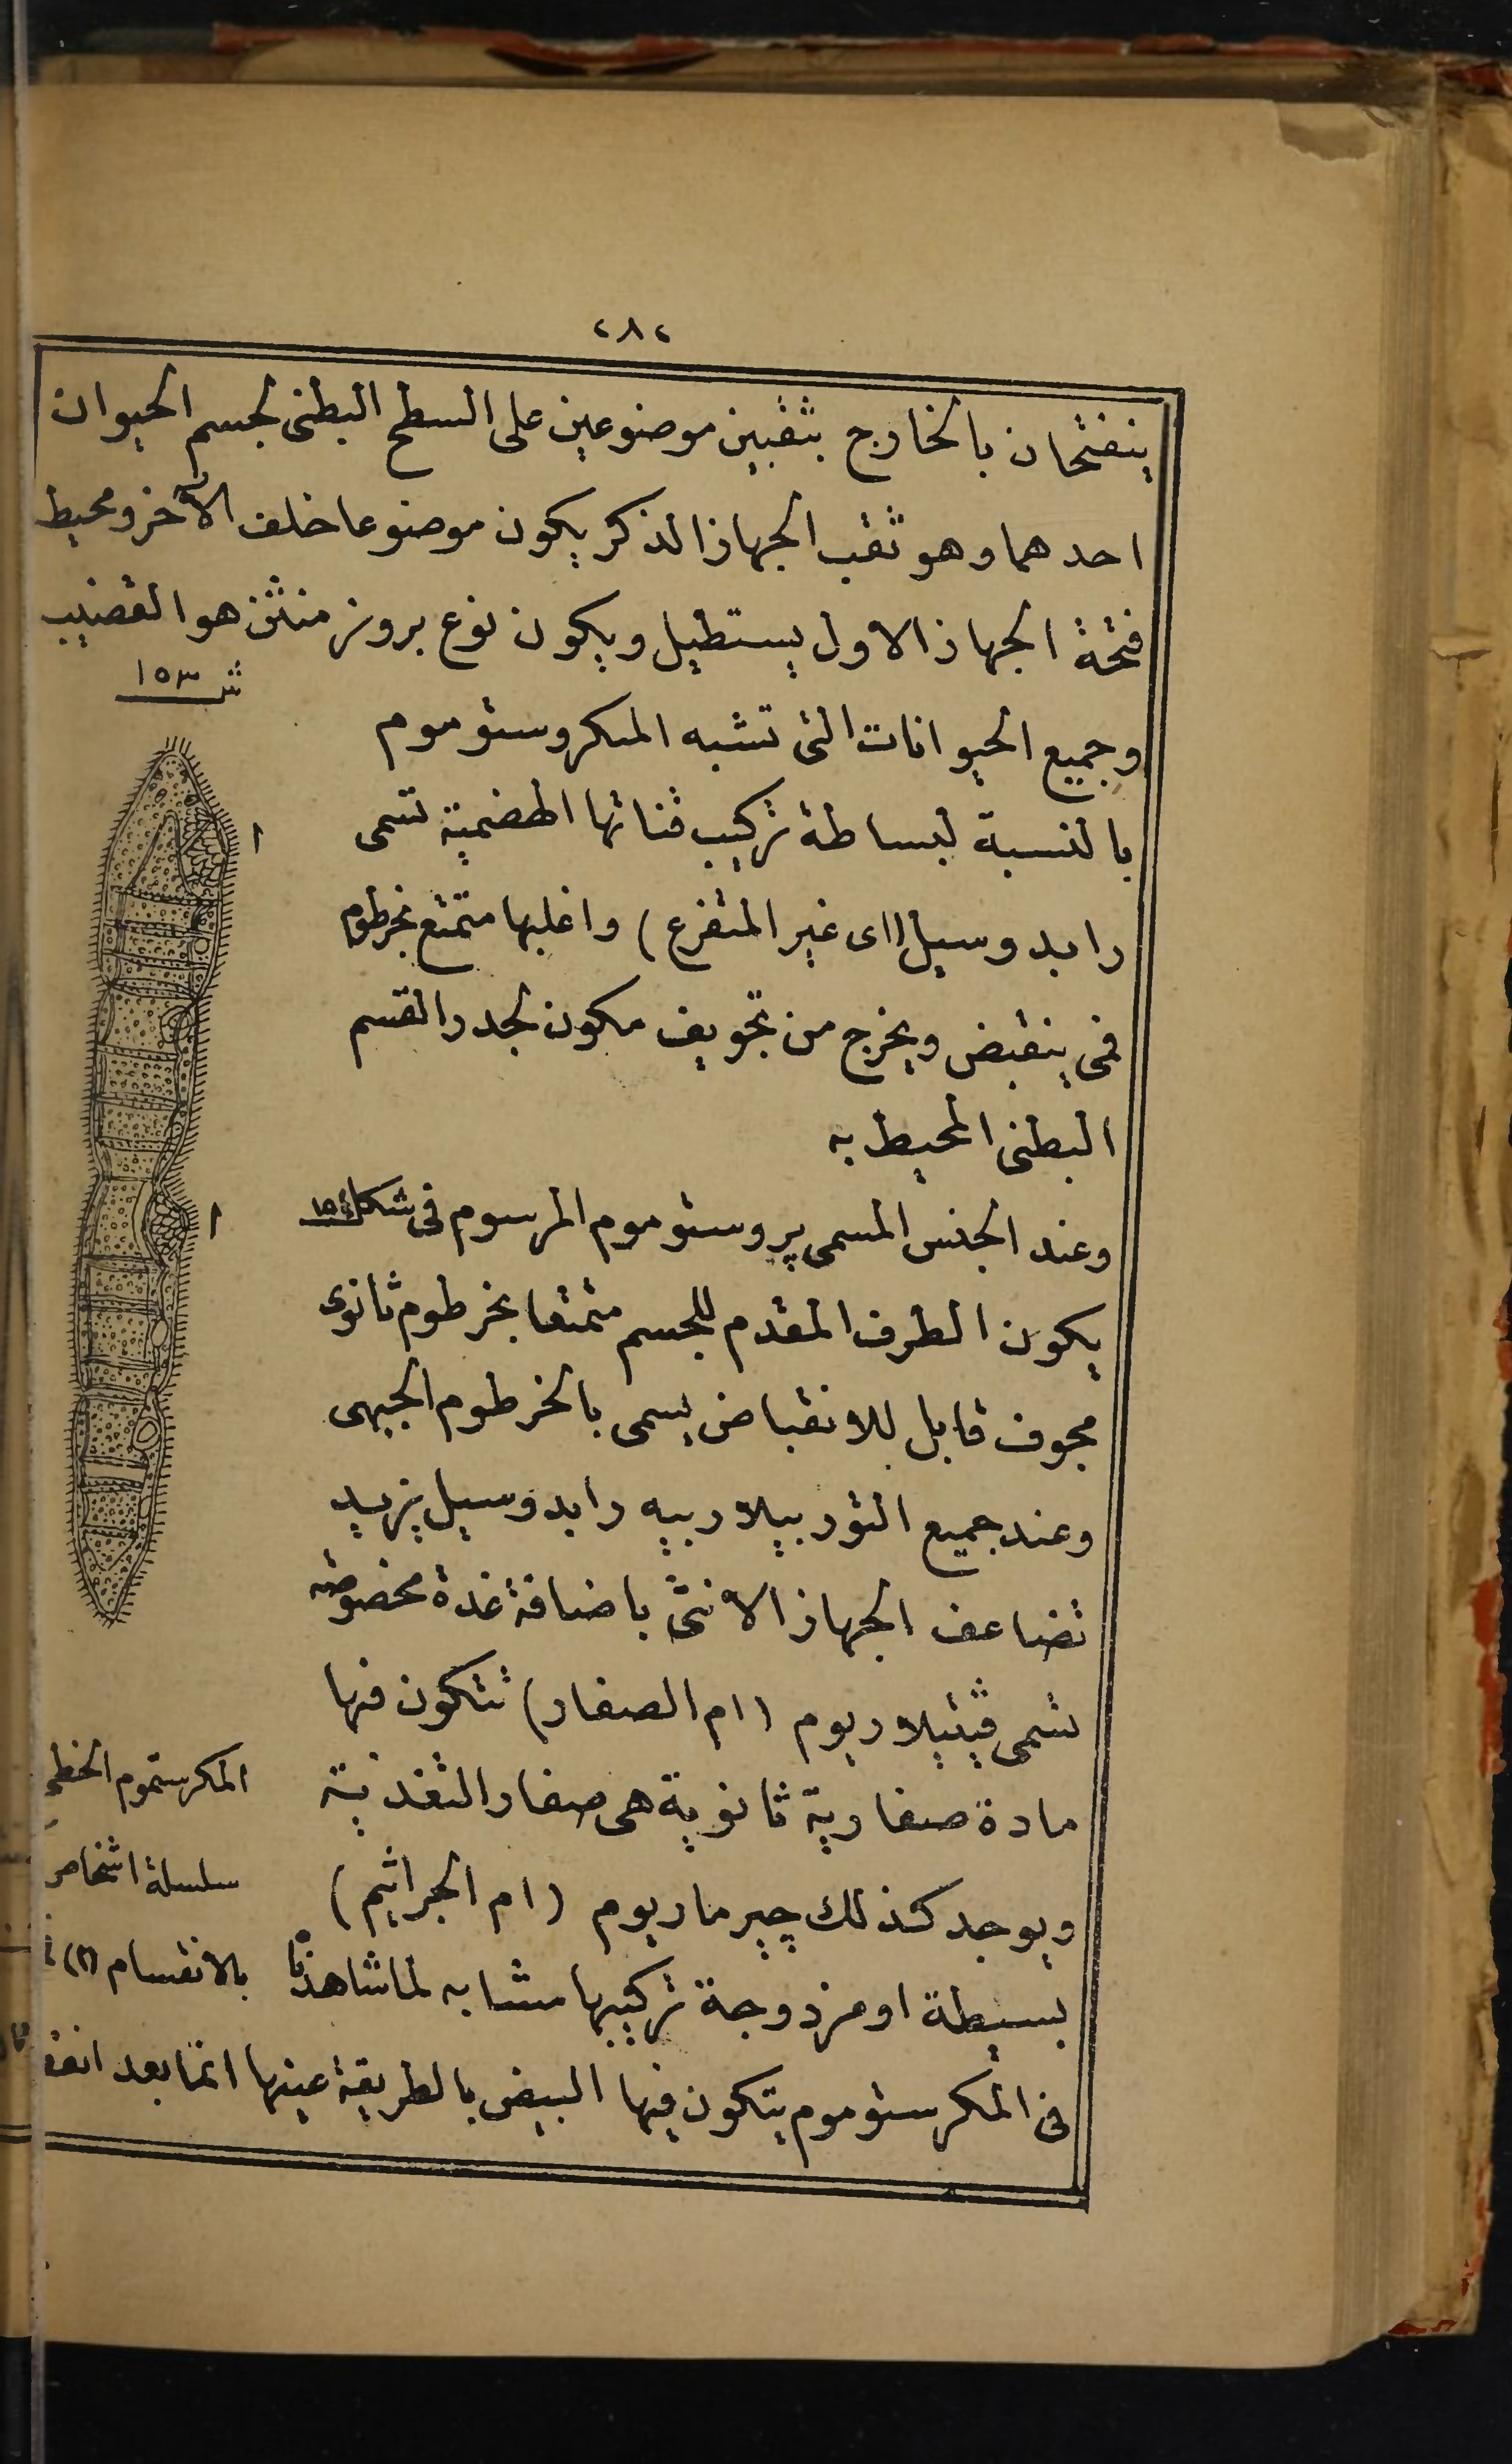 ٢٨٢
ينفتحان بالخارج بثقبين موضوعين على السطح البطنى لجسم الحيوان
احدهما وهو ثقب الجهاز الذكر يكون موضوعا خلف الآخر ومحيط
فتحة الجهاز الاول يستطيل ويكون نوع بروز منثن هو القضيب
وجميع الحيوانات التى تشبه المكروستوموم
بالنسبة لبساطة تركيب قناتها الهضمية تسمى
رابدوسيل (اى غير المتفرع) واغلبها متمتع بخرطوم
فمى ينقبض ويخرج من تجويف مكون لجدر القسم
البطنى المحيط به
وعند الجنس المسمى پروستوموم المرسوم فى شكل
يكون الطرف المقدم للجسم متمتعا بخرطوم ثانوى
مجوف قابل للانقباض يسمى بالخرطوم الجبهى
وعند جميع التوربيلارييه رابدوسيل يزيد
تضاعف الجهاز الانثى باضافة غدة مخصوصة
تسمى ڤيتيلاريوم (ام الصفار) تتكون فيها
مادة صفارية ثانوية هى صفار التغذية
ويوجد كذلك چيرماريوم (ام الجراثيم)
بسيطة او مزدوجة تركيبها مشابه لما شاهدنا
فى المكرستوموم يتكون فيها البيض بالطريقة عينها انما بعد
ش ١٥٣
ا
ا
المكرستموم الخطى
سلسلة اشخاص
بالانقسام (٢)